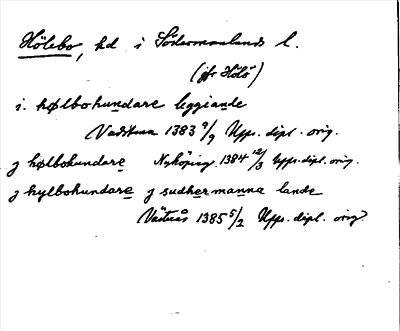 Hölebo, hd i Södermanlands l.
(jfr Hölö)
i hølbohundare leggiande
Vadstena 1383 9/9 Upps. dipl. orig.
j hølbohundare Nyköping 1384 12/3 Upps. dipl. orig.
j hylbohundare j sudhermanna lande
Västerås 1385 5/2 Upps. dipl. orig.